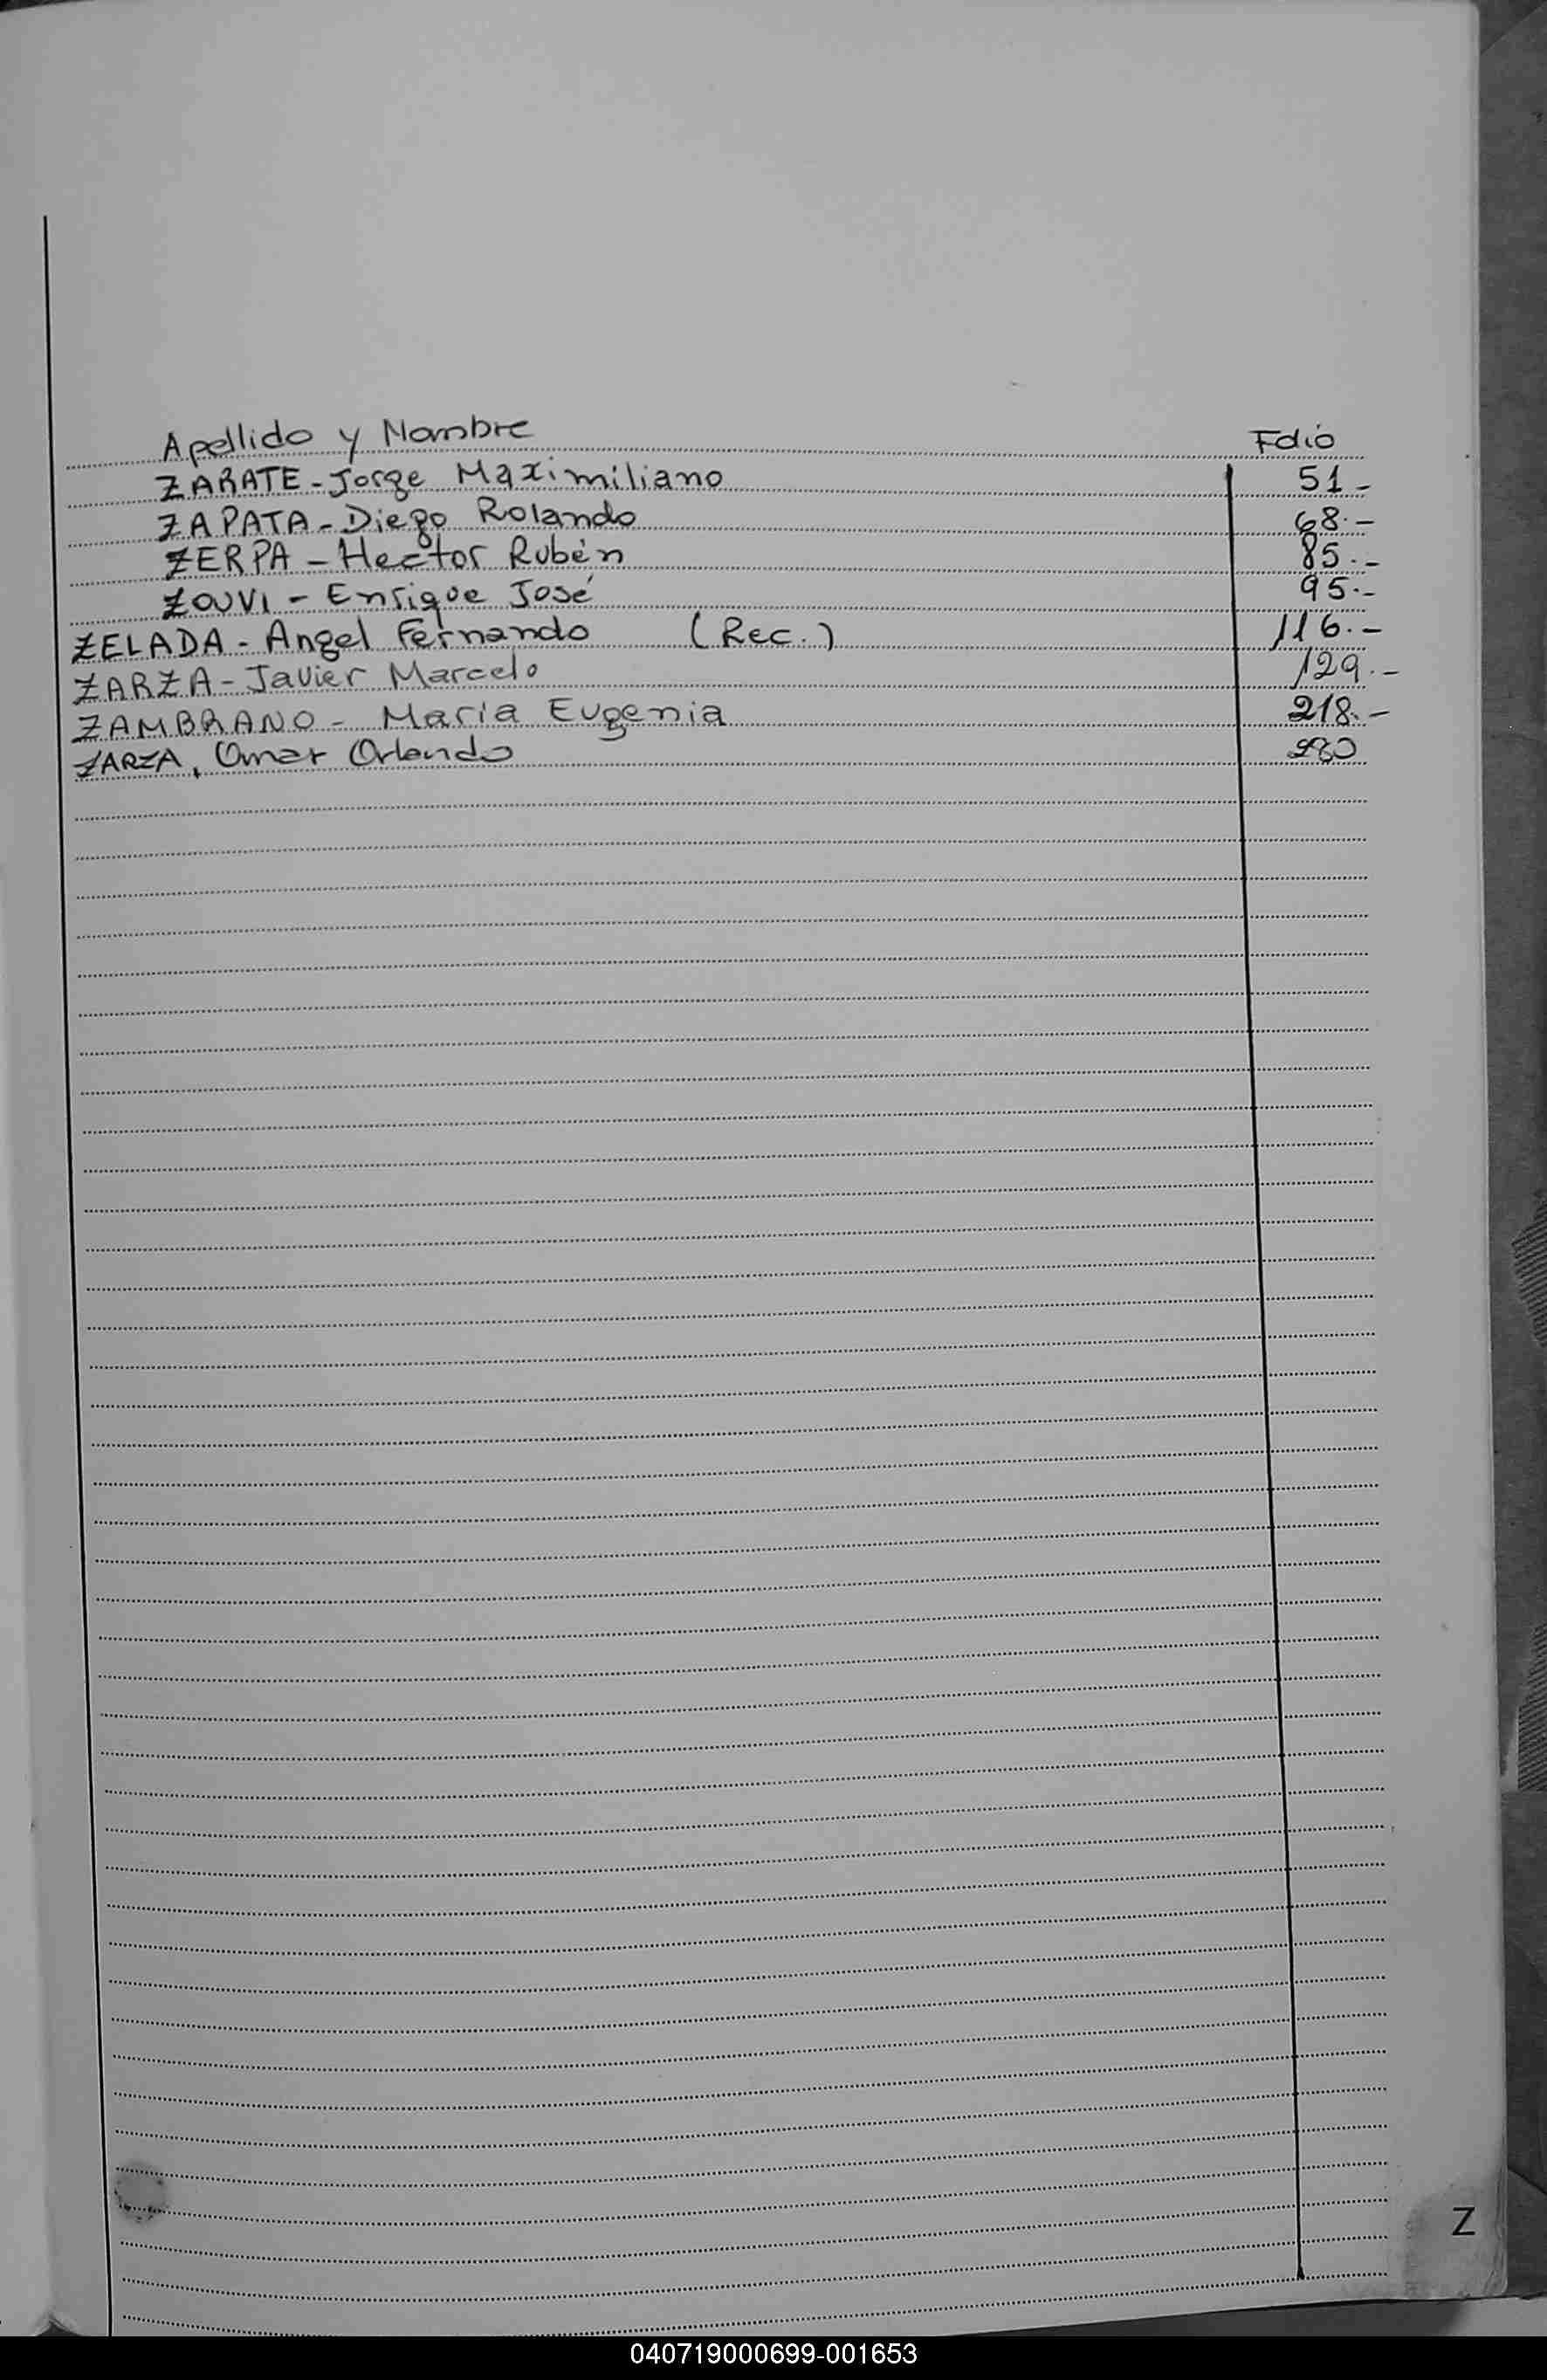 Apellido y Nombre Folio
ZARATE - Jorge Maximiliano 51 -
ZAPATA - Diego Rolando 68.-
ZERPA - Hector Rubén 85.-
ZOUVI - Enrique José 95.-
ZELADA - Angel Fernando (Rec.) 116.-
ZARZA - Javier Marcelo 129.-
ZAMBRANO - María Eugenia 218.-
ZARZA, Omar Orlando
Z
040719000699-001653